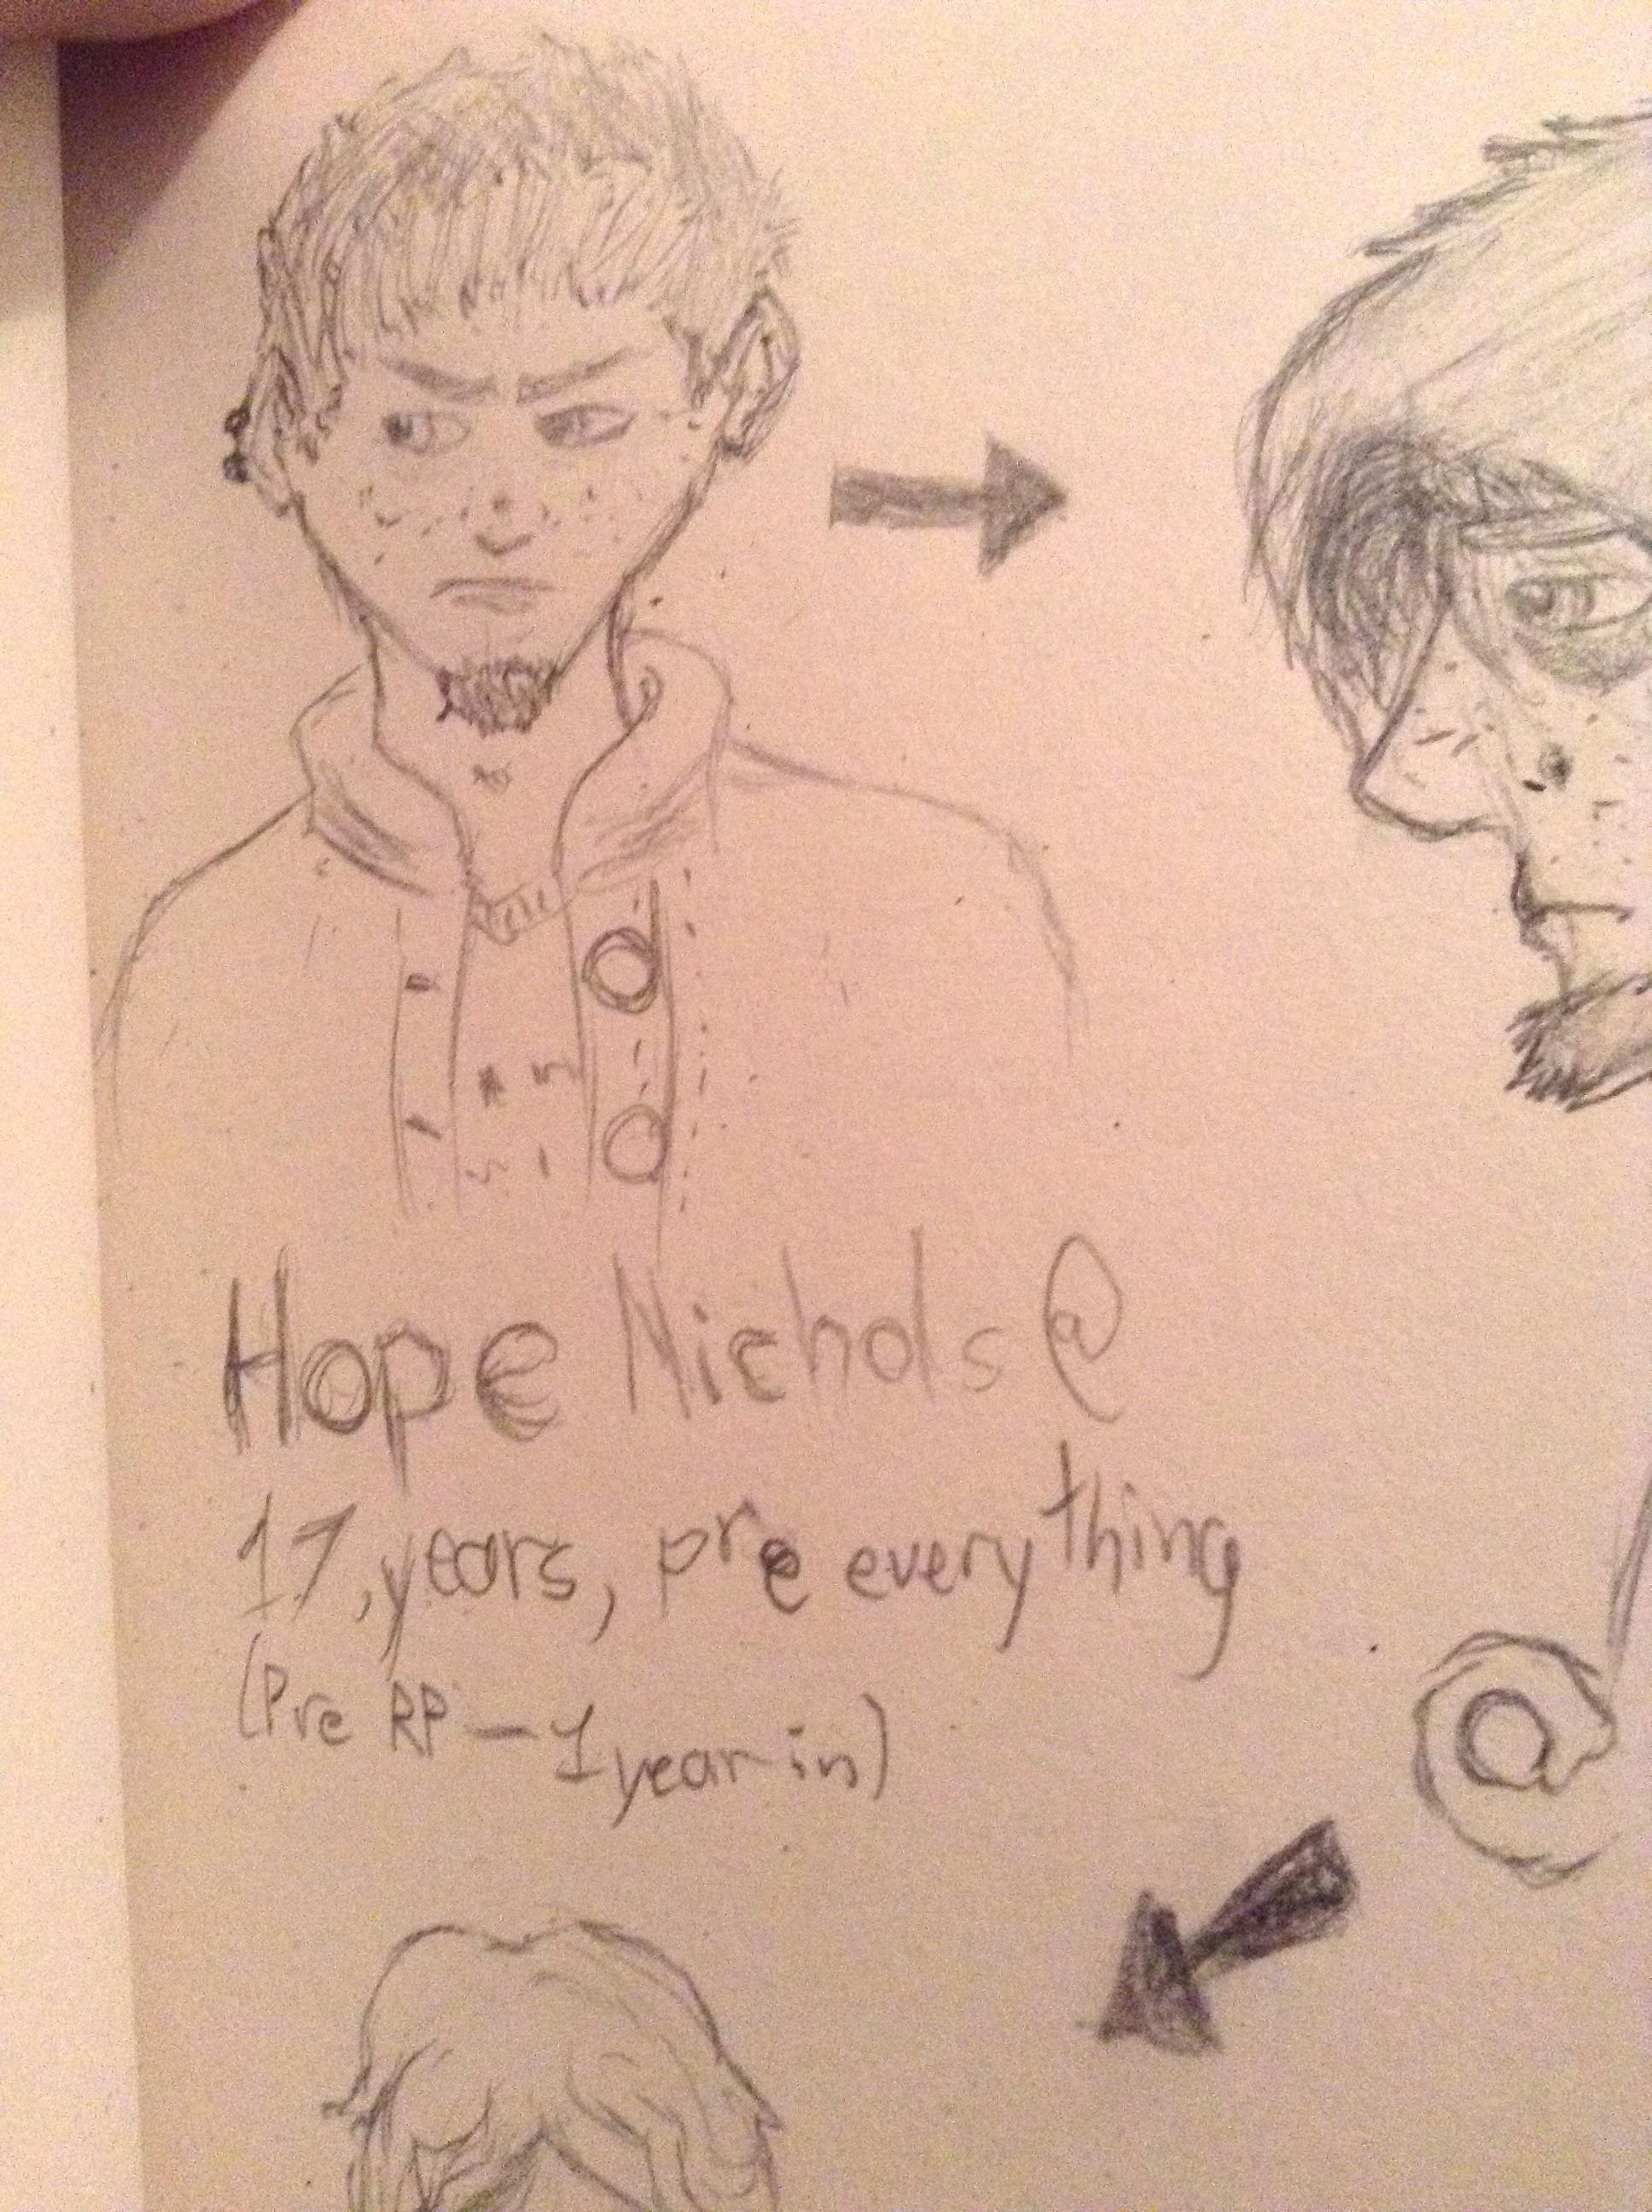 Hope Nichols @
17, years, pre everything
(Pre RP - 1 year in)